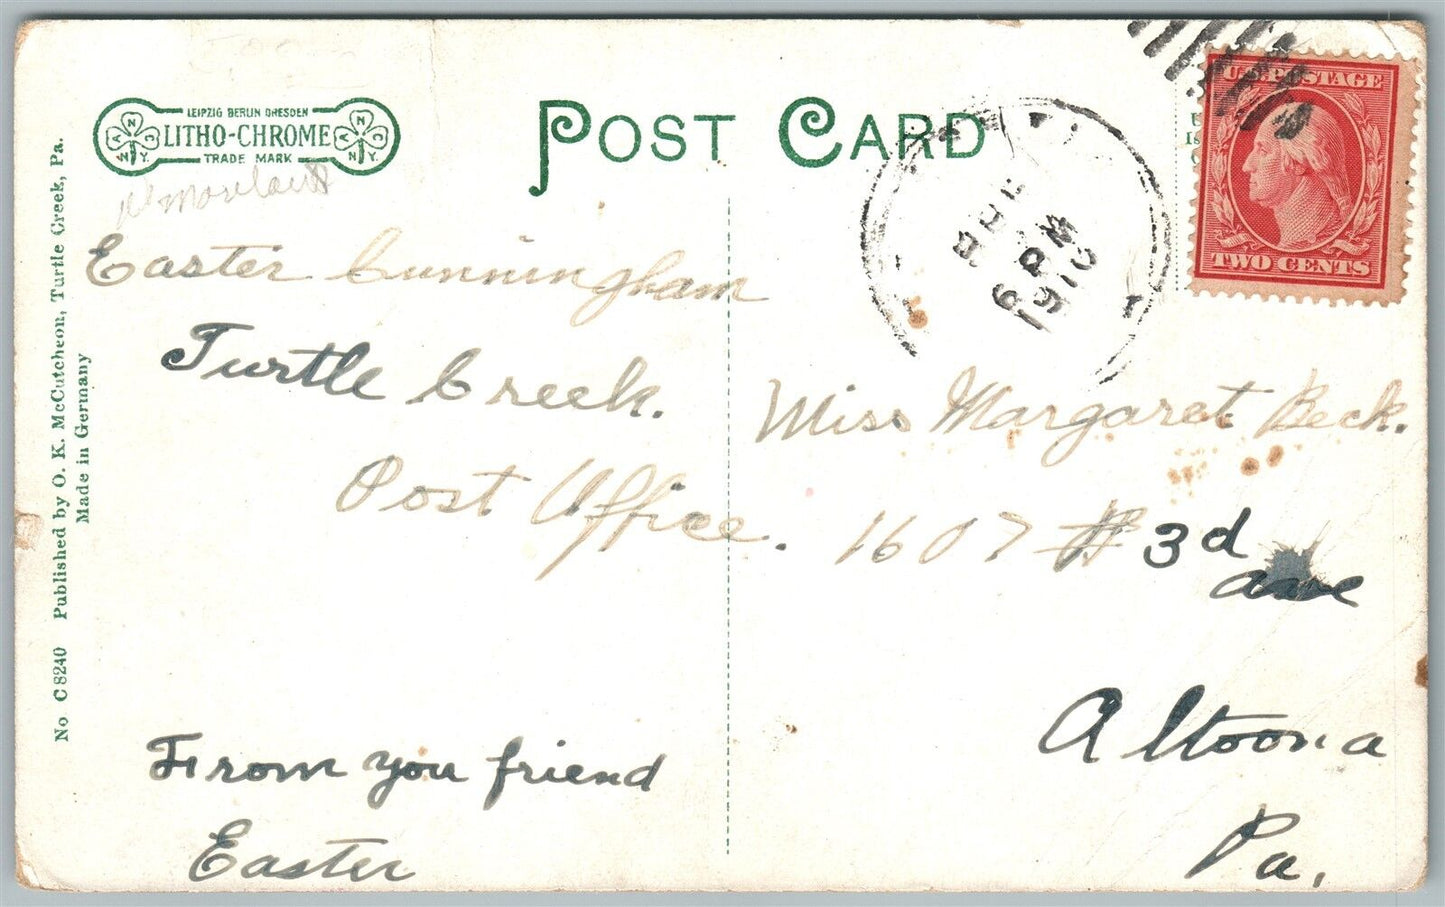 LEIPZIG BERLIN DRESDEN
LITHO-CHROME
TRADE MARK
POST CARD
U.S. POSTAGE
TWO CENTS
6 PM
1910
Easter Cunningham
Turtle Creek.
Post Office.
From you friend
Easter
Miss Margaret Beck.
1607 3d
ave
Altoona
Pa.
No C 8240 Published by O. K. McCutcheon, Turtle Creek, Pa.
Made in Germany